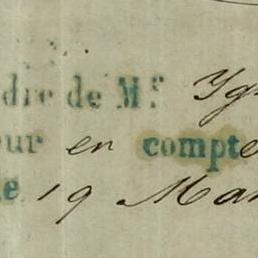 dre de Mr. Yg
ur en compte
e 19 Mar